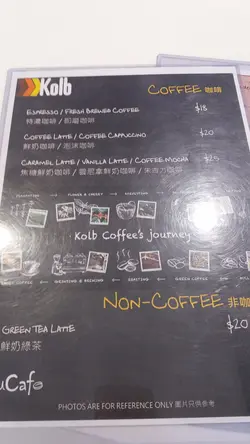 Kolb
COFFEE 咖啡
ESPRESSO / FRESH BREWED COFFEE $18
特濃咖啡 / 即磨咖啡
COFFEE LATTE / COFFEE CAPPUCCINO $20
鮮奶咖啡 / 泡沫咖啡
CARAMEL LATTE / VANILLA LATTE / COFFEE MOCHA $25
焦糖鮮奶咖啡 / 雲尼拿鮮奶咖啡 / 朱古力咖啡
Kolb Coffee's journey
ROASTING
GREEN COFFEE
NON-COFFEE 非咖
GREEN TEA LATTE $20
鮮奶綠茶
uCafe
PHOTOS ARE FOR REFERENCE ONLY 圖片只供參考